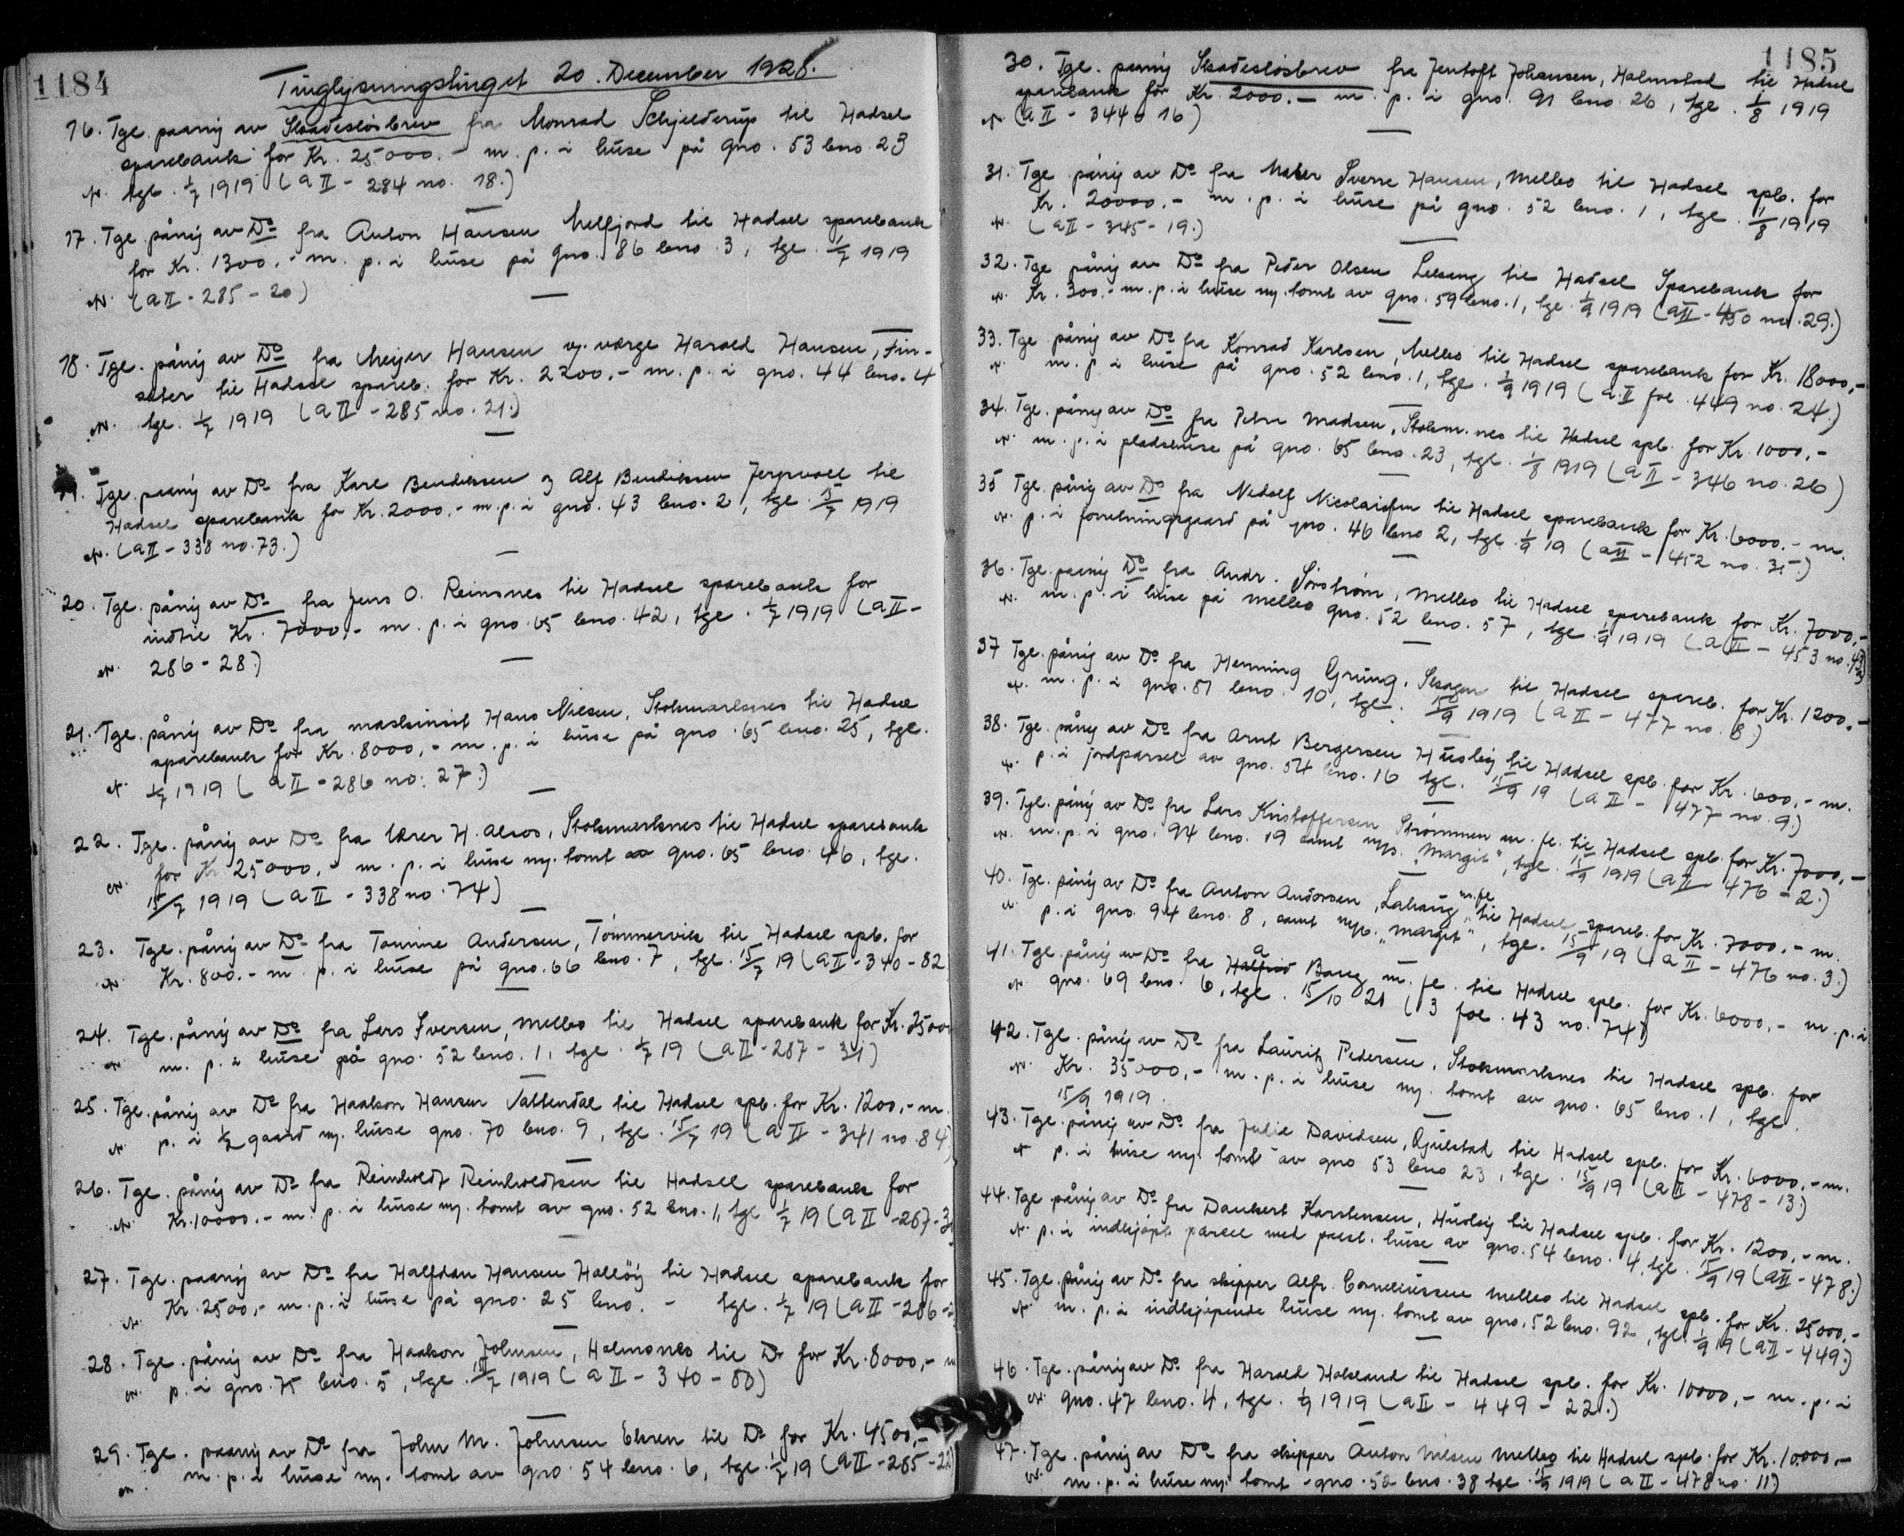 1184
Tinglysningstinget 20. December 1928.
16. Tgl. paanÿ av Skadesløsbrev fra Monrad Schjelderup til Hadsel
sparebank for Kr. 25000.- m. p. i huse på gno. 53 bno. 23
tgl. 1/7 1919 (a II - 284 no. 18.)
17. Tgl. pånÿ av Do fra Anton Hansen Melfjord til Hadsel sparebank
for Kr. 1300.- m. p. i huse på gno. 86 bno. 3, tgl. 1/7 1919
(a II - 285 - 20)
18. Tgl. pånÿ av Do fra Meyer Hansen v. værge Harald Hansen, Fin-
sæter til Hadsel spareb. for Kr. 2200.- m. p. i gno. 44 bno. 4
tgl. 1/7 1919 (a II - 285 no. 21.)
19. Tgl. paanÿ av Do fra Karl Bendiksen og Alf Bendiksen til
Hadsel sparebank for Kr. 2000.- m. p. i gno. 43 bno. 2, tgl. 15/7 1919
(a II - 338 no. 73.)
20. Tgl. pånÿ av Do fra Jens O. Reinsnes til Hadsel sparebank for
indtil Kr. 7000.- m. p. i gno. 65 bno. 42, tgl. 1/7 1919 (a II -
286 - 28.)
21. Tgl. pånÿ av Do fra maskinist Hans Nilsen, Stokmarknes til Hadsel
sparebank for Kr. 8000.- m. p. i huse på gno. 65 bno. 25, tgl.
1/7 1919 (a II - 286 no. 27.)
22. Tgl. pånÿ av Do fra lærer H. Alsos, Stokmarknes til Hadsel sparebank
for Kr. 25000.- m. p. i huse m. tomt av gno. 65 bno. 46, tgl.
15/7 1919 (a II - 338 no. 74)
23. Tgl. pånÿ av Do fra Tomine Andersen, Tømmervik til Hadsel spb. for
Kr. 800.- m. p. i huse på gno. 66 bno. 7, tgl. 15/7 19 (a II - 340 - 82
24. Tgl. pånÿ av Do fra Lars Iversen, Melbo til Hadsel sparebank for Kr.
m. p. i huse på gno. 52 bno. 1, tgl. 1/7 19 (a II - 287 - 31)
25. Tgl. pånÿ av Do fra Haakon Hansen Vattendal til Hadsel spb. for Kr. 1200.- m.
p. i 1/2 gaard m. huse gno. 70 bno. 9, tgl. 15/7 19 (a II - 341 no. 84)
26. Tgl. pånÿ av Do fra Reinholdt Reinholdtsen til Hadsel sparebank for
Kr. 10000.- m. p. i huse m. tomt av gno. 52 bno. 1, tgl. 1/7 19 (a II - 287 -
27. Tgl. paanÿ av Do fra Halfdan Hansen Holløy til Hadsel sparebank for
Kr. 2500.- m. p. i huse på gno. 25 bno. - tgl. 1/7 19 (a II - 286 -
28. Tgl. pånÿ av Do fra Haakon Johnsen, Holmsnes til Do for Kr. 8000.- m
p. i gno. 75 bno. 5, tgl. 15/7 1919 (a II - 340 - 80)
29. Tgl. paanÿ av Do fra John M. Johnsen til Do for Kr. 4500.-
m. p. i huse m. tomt av gno. 54 bno. 6, tgl. 1/7 19 (a II - 285 - 22
1185
30. Tgl. paanÿ Skadesløsbrev fra Jentoft Johansen, Holmstad til Hadsel
sparebank for Kr. 2000.- m. p. i gno. 91 bno. 26, tgl. 1/8 1919
(a II - 344 - 16)
31. Tgl. pånÿ av Do fra Sverre Hansen, Melbo til Hadsel spb. for
Kr. 20000.- m. p. i huse på gno. 52 bno. 1, tgl. 1/8 1919
(a II - 345 - 19.)
32. Tgl. pånÿ av Do fra Peder Olsen til Hadsel Sparebank for
Kr. 300.- m. p. i huse m. tomt av gno. 59 bno. 1, tgl. 1/9 1919 (a II - 450 no. 29.)
33. Tgl. pånÿ av Do fra Konrad Karlsen, Melbo til Hadsel sparebank for Kr. 18000.-
m. p. i huse på gno. 52 bno. 1, tgl. 1/9 1919 (a II fol. 449 no. 24.)
34. Tgl. pånÿ av Do fra Petra Madsen, Stokm.nes til Hadsel spb. for Kr. 1000.-
m. p. i pladshuse på gno. 65 bno. 23, tgl. 1/8 1919 (a II - 346 no. 26)
35 Tgl. pånÿ av Do fra Nicolaisen til Hadsel sparebank for Kr. 6000.- m.
p. i forretningsgaard på gno. 46 bno 2, tgl. 1/9 19 (a II - 452 no. 35)
36. Tgl. paanÿ Do fra Andr. Sørstrøm, Melbo til Hadsel sparebank for Kr. 7000.-
m. p. i huse på Melbo gno. 52 bno. 57, tgl. 1/9 1919 (a II - 453 no. 42)
37 Tgl. pånÿ av Do fra Henning Grüng, Skagen til Hadsel spareb. for Kr. 1200.-
m. p. i gno. 81 bno. 10, tgl. 15/9 1919 (a II - 477 no. 8)
38. Tgl. pånÿ av Do fra Arnt Bergersen Husby til Hadsel spb. for Kr. 600.- m.
p. i jordparsel av gno. 54 bno. 16 tgl. 15/9 19 (a II - 477 no. 9)
39. Tgl. pånÿ av Do fra Lars Kristoffersen Strømmen m. fl. til Hadsel spb. for Kr. 7000.-
m. p. i gno. 94 bno. 19 samt "Margit", tgl. 15/9 1919 (a II - 476 - 2.)
40. Tgl. pånÿ av Do fra Anton Andorsen, m. fl. til Hadsel spareb. for Kr. 7000.- m.
p. i gno. 94 bno. 8, samt "Margit", tgl. 15/9 19 (a II - 476 no. 3.)
41. Tgl. pånÿ av Do fra Bang m. fl. til Hadsel spb. for Kr. 6000.- m. p. i
gno. 69 bno. 6, tgl. 15/10 21 (13 fol. 43 no. 74)
42. Tgl. pånÿ av Do fra Lauritz Pedersen, Stokmarknes til Hadsel spb. for
Kr. 35000.- m. p. i huse m. tomt av gno. 65 bno. 1, tgl.
15/9 1919.
43. Tgl. pånÿ av Do fra Julie Davidsen, til Hadsel spb. for Kr. 6000.- m.
p. i huse m. tomt av gno 53 bno 23, tgl. 15/9 19 (a II - 478 - 13.)
44. Tgl. pånÿ av Do fra Dankert Karstensen, Husby til Hadsel spb. for Kr. 1200.- m.
p. i indkjøpt parcel med huse av gno. 54 bno. 4, tgl. 15/9 19 (a II - 478.)
45. Tgl. pånÿ av Do fra skipper Alfr. Corneliussen Melbo til Hadsel spb. for Kr. 25000.-
m. p. i huse m. tomt av gno. 52 bno. 92, tgl. 1/9 19 (a II - 449.)
46. Tgl. pånÿ av Do fra Harald til Hadsel spb. for Kr. 10000.- m. p. i
gno. 47 bno. 4, tgl. 1/9 1919 (a II - 449 - 22.)
47. Tgl. pånÿ av Do fra skipper Anton Nilsen Melbo til Hadsel spb. for Kr. 10.000.-
m. p. i huse m. tomt - gno. 52 bno. 38 tgl. 15/9 1919 (a II - 478 no. 11)